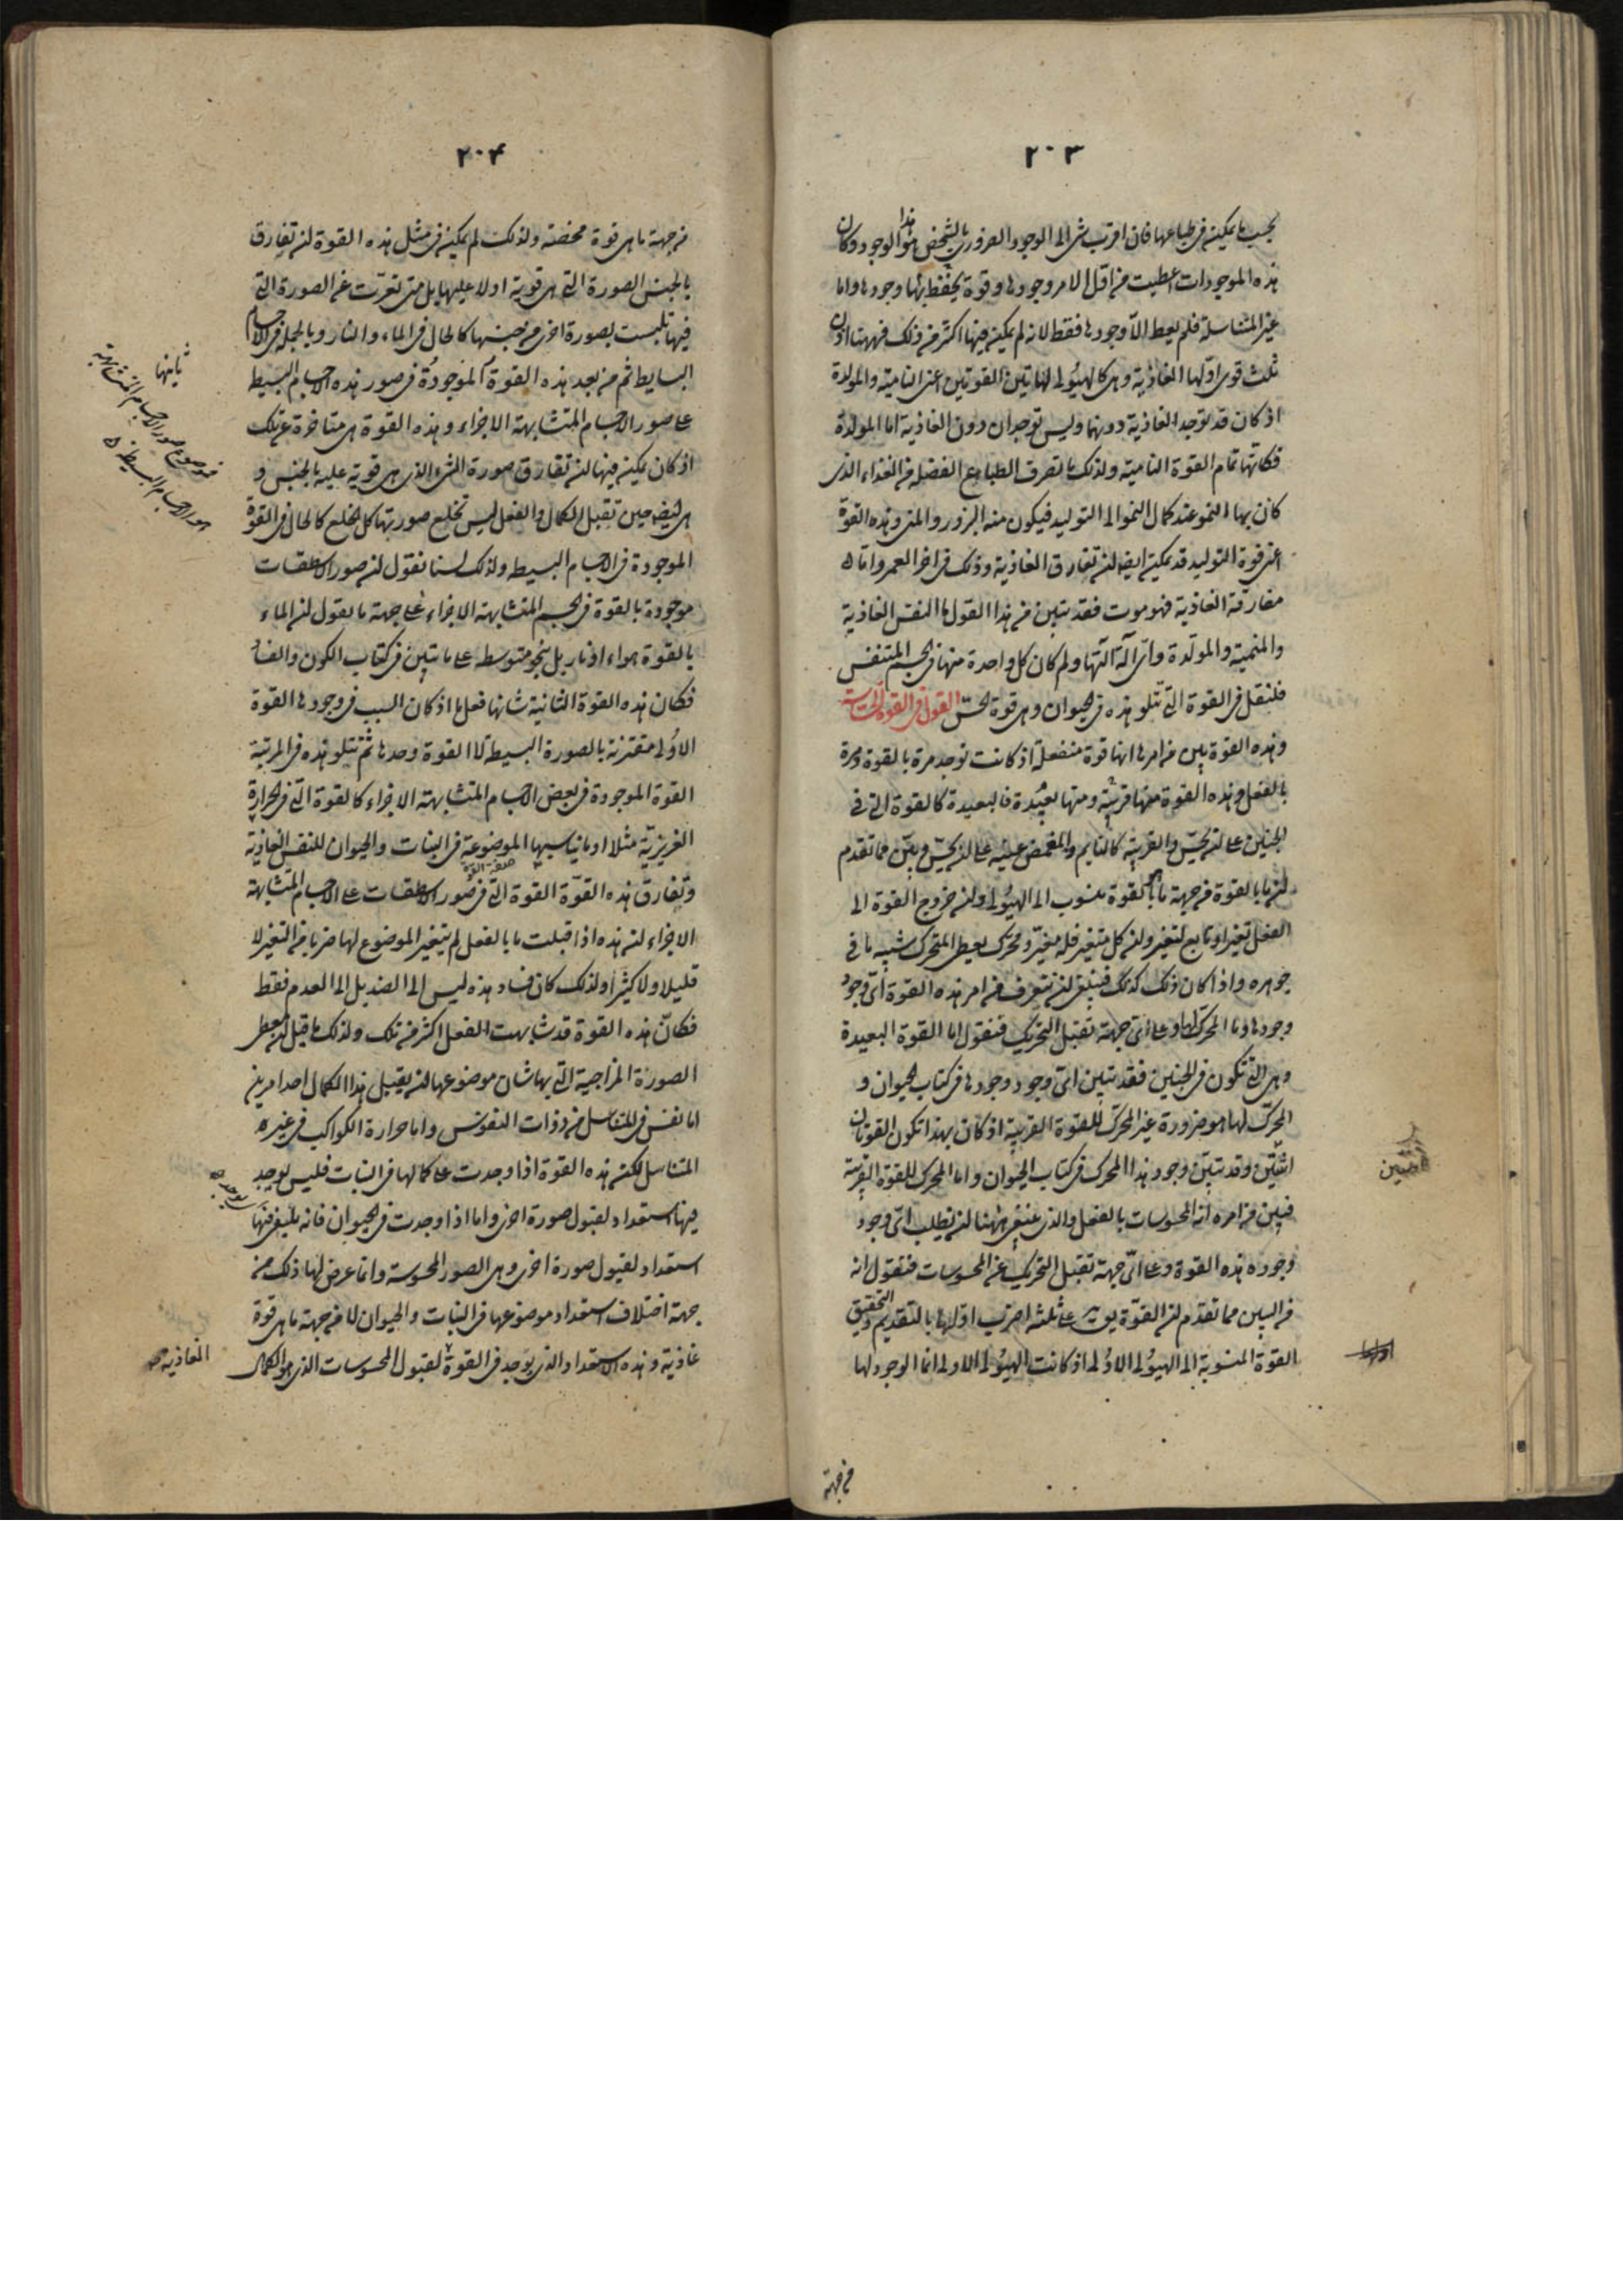 ٢٠٣
بحسب ما يمكن في طباعها فان اقرب شئ الى الوجود الضرورى بالشخص هو هذا الوجود وكان
هذه الموجودات اعطيت من اول الامر وجودها وقوة يحفظ بها وجودها واما
غير المتناسلة فلم يعط الا وجودها فقط لانه لم يمكن فيها اكثر من ذلك فههنا اذن
ثلث قوى اولها الغاذية وهى كالهيولى لهاتين القوتين اعنى النامية والمولدة
اذ كان قد توجد الغاذية دونهما وليس توجدان دون الغاذية اما المولدة
فكانها تمام القوة النامية ولذلك ما تصرف الطباع الفضلة من الغذاء الذى
كان بها النمو عند كمال النمو الى التوليد فيكون منه البزور والمنى وهذه القوة
اعنى قوة التوليد قد يمكن ايضا ان تفارق الغاذية وذلك فى اخر العمر واما
مفارقة الغاذية فهو موت فقد تبين من هذا القول ما النفس الغاذية
والمنمية والمولدة واى آلة آلتها ولم كان كل واحدة منها فى الجسم المتنفس
فلنقل فى القوة التى تتلو هذه فى الحيوان وهى قوة الحس القول فى القوة الحاسة
وهذه القوة بين من امرها انها قوة منفعلة اذ كانت توجد مرة بالقوة ومرة
بالفعل وهذه القوة منها قريبة ومنها بعيدة فالبعيدة كالقوة التى فى
الجنين على ان يحس والقريبة كالنايم والمغمض عينيه على ان يحس وبين مما تقدم
ان ما بالقوة من جهة ما بالقوة منسوب الى الهيولى وان خروج القوة الى
الفعل تغير او تابع لتغير وان كل متغير فله مغير ومحرك يعطى المتحرك شبيه ما فى
جوهره واذا كان ذلك كذلك فينبغى ان نتعرف من امر هذه القوة اى وجود
وجودها وما المحرك لها وعلى اى جهة تقبل التحريك فنقول اما القوة البعيدة
وهى التى تكون فى الجنين فقد تبين اى وجود وجودها فى كتاب الحيوان و
المحرك لها هو ضرورة غير المحرك للقوة القريبة اذ كان بهذا تكون القوتان
اثنتين وقد تبين وجود هذا المحرك فى كتاب الحيوان واما المحرك للقوة القريبة
فبين من امره انه المحسوسات بالفعل والذى ينبغى ههنا ان نطلب اى وجود
وجود هذه القوة وعلى اى جهة تقبل التحريك عن المحسوسات فنقول انه
من البين مما تقدم ان القوة يق على ثلثة اضرب اولها بالتقديم والتحقيق
القوة المنسوبة الى الهيولى الاولى اذ كانت الهيولى الاولى انما الوجود لها
من جهة
٢٠٤
من جهة ما هى قوة محضة ولذلك لم يمكن فى مثل هذه القوة ان تفارق
بالجنس الصورة التى هى قوية اولا عليها بل متى تعرت عن الصورة التى
فيها تلبست بصورة اخرى من جنسها كالحال فى الماء والنار وبالجملة فى الاجسام
البسايط ثم من بعد هذه القوة الموجودة فى صور هذه الاجسام البسيطة
على صور الاجسام المتشابهة الاجزاء وهذه القوة هى متاخرة عن تلك
اذ كان يمكن فيها ان تفارق صورة الشئ الذى هى قوية عليه بالجنس و
هى ايضا حين تقبل الكمال والفعل ليس تخلع صورتها كل الخلع كالحال فى القوة
الموجودة فى الاجسام البسيطة ولذلك لسنا نقول ان صور الاسطقسات
موجودة بالقوة فى الجسم المتشابهة الاجزاء على جهة ما نقول ان الماء
بالقوة هواء او نار بل بنحو متوسطة على ما تبين فى كتاب الكون والفساد
فكان هذه القوة الثانية شانها فعل ما اذ كان السبب فى وجودها القوة
الاولى مقترنة بالصورة البسيطة لا القوة وحدها ثم تتلو هذه فى المرتبة
القوة الموجودة فى بعض الاجسام المتشابهة الاجزاء كالقوة التى فى الحرارة
الغريزية مثلا او ما يناسبها الموضوعة فى النبات والحيوان للنفس الغاذية
وتفارق هذه القوة القوة التى فى صور الاسطقسات على الاجسام المتشابهة
الاجزاء لان هذه اذا قبلت ما بالفعل لم يتغير الموضوع لها ضربا من التغير لا
قليلا ولا كثيرا ولذلك كان فساد هذه ليس الى الضد بل الى العدم فقط
فكان هذه القوة قد شابهت الفعل اكثر من تلك ولذلك ما قيل انه يعطى
الصورة المزاجية التى بها شان موضوعها ان يقبل هذا الكمال احد امرين
اما نفس فى المتناسل من ذوات النفوس واما حرارة الكواكب فى غير
المتناسل لكن هذه القوة اذا وجدت على كمالها فى النبات فليس يوجد
فيها استعداد لقبول صورة اخرى واما اذا وجدت فى الحيوان فانه يلفى فيها
استعداد لقبول صورة اخرى وهى الصور المحسوسة وانما عرض لها ذلك من
جهة اختلاف استعداد موضوعها فى النبات والحيوان لا من جهة ما هى قوة
غاذية وهذه الاستعداد الذى يوجد فى القوة لقبول المحسوسات الذى هو الكمال
ثانيها
الغاذية